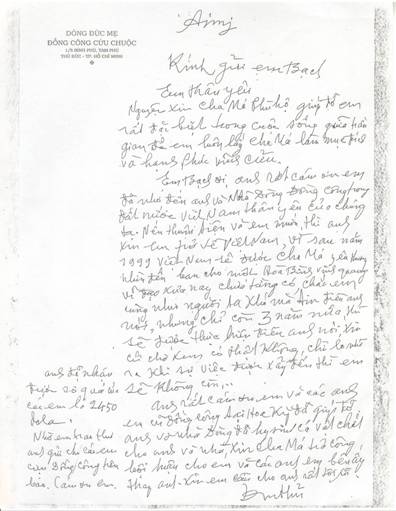 Aimj
DÒNG ĐỨC MẸ
ĐỒNG CÔNG CỨU CHUỘC
THỦ ĐỨC - TP. HỒ CHÍ MINH
Kính gửi em Bạch
Em thân yêu
Nguyện xin Cha Mẹ giúp đỡ em
rất đặc biệt trong cuộc sống giữa trần
gian để em luôn lấy Cha Mẹ làm mục đích
và hạnh phúc vĩnh cửu.
Em Bạch ơi, anh rất cám ơn em
đã nhớ đến anh và Nhà Dòng Đồng Công trong
đất nước Việt Nam thân yêu của chúng
ta. Nên thuận tiện và em muốn, thì anh
xin em giờ về Việt Nam, vì sau năm
1999 Việt Nam sẽ được Cha Mẹ yêu thương
nhìn đến ban cho một Hòa Bình vinh quang
vì xưa nay chưa từng có, chắc em
cũng như người ta khó mà tin điều anh
nói, nhưng chỉ còn 3 năm nữa, thì
sẽ được thực hiện điều anh nói. Xin
cứ chờ xem có thật không, chỉ lo nhỡ
ra khi sự việc được xảy đến thì em
sẽ không còn...
anh đã nhận
được số quà của
các em là 2450
đola.
Nhờ em trao thư
anh gửi cho các em
cựu Đồng Công tiên
báo. Cám ơn em.
anh rất cám ơn em và các anh
em cựu Đồng Công tại Hoa Kỳ đã giúp đỡ
anh và nhà Dòng có vật chất
cho anh và nhà, xin Cha Mẹ trả công
bội hậu cho em và các anh em bên ấy
thay anh. Xin em cầu cho anh rất